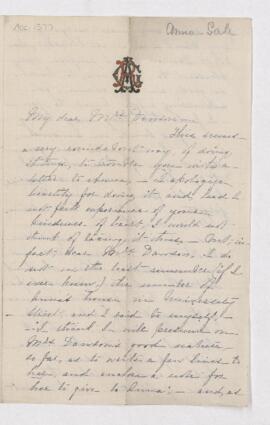 Anna Gale
My dear Mrs Dawson
This seems
a very roundabout way of doing
things, to trouble you with a
letter to Anna — I apologise
heartily for doing it and had I
not past experience of your
kindness of heart, I would not
think of taking it thus — But, in
fact, dear Mrs Dawson, I do
not in the least remember (if I
ever knew) the number of
Anna's house in University
Street and I said to myself,
"I think I will presume on
Mrs Dawson's good nature
so far, as to write a few lines to
her, and enclose a note for
her to give to Anna" — and, as